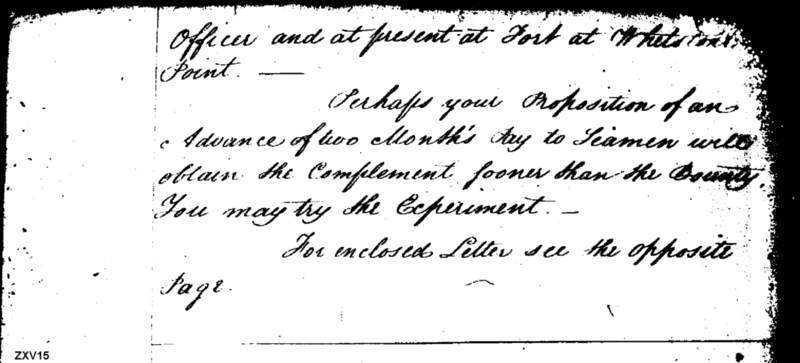 Officer and at present at Fort at Whetstone
Point. —
Perhaps your Proposition of an
Advance of two Month's Pay to Seamen will
obtain the Complement sooner than the Bounty.
You may try the Experiment. —
For enclosed Letter see the opposite
Page.
ZXV15